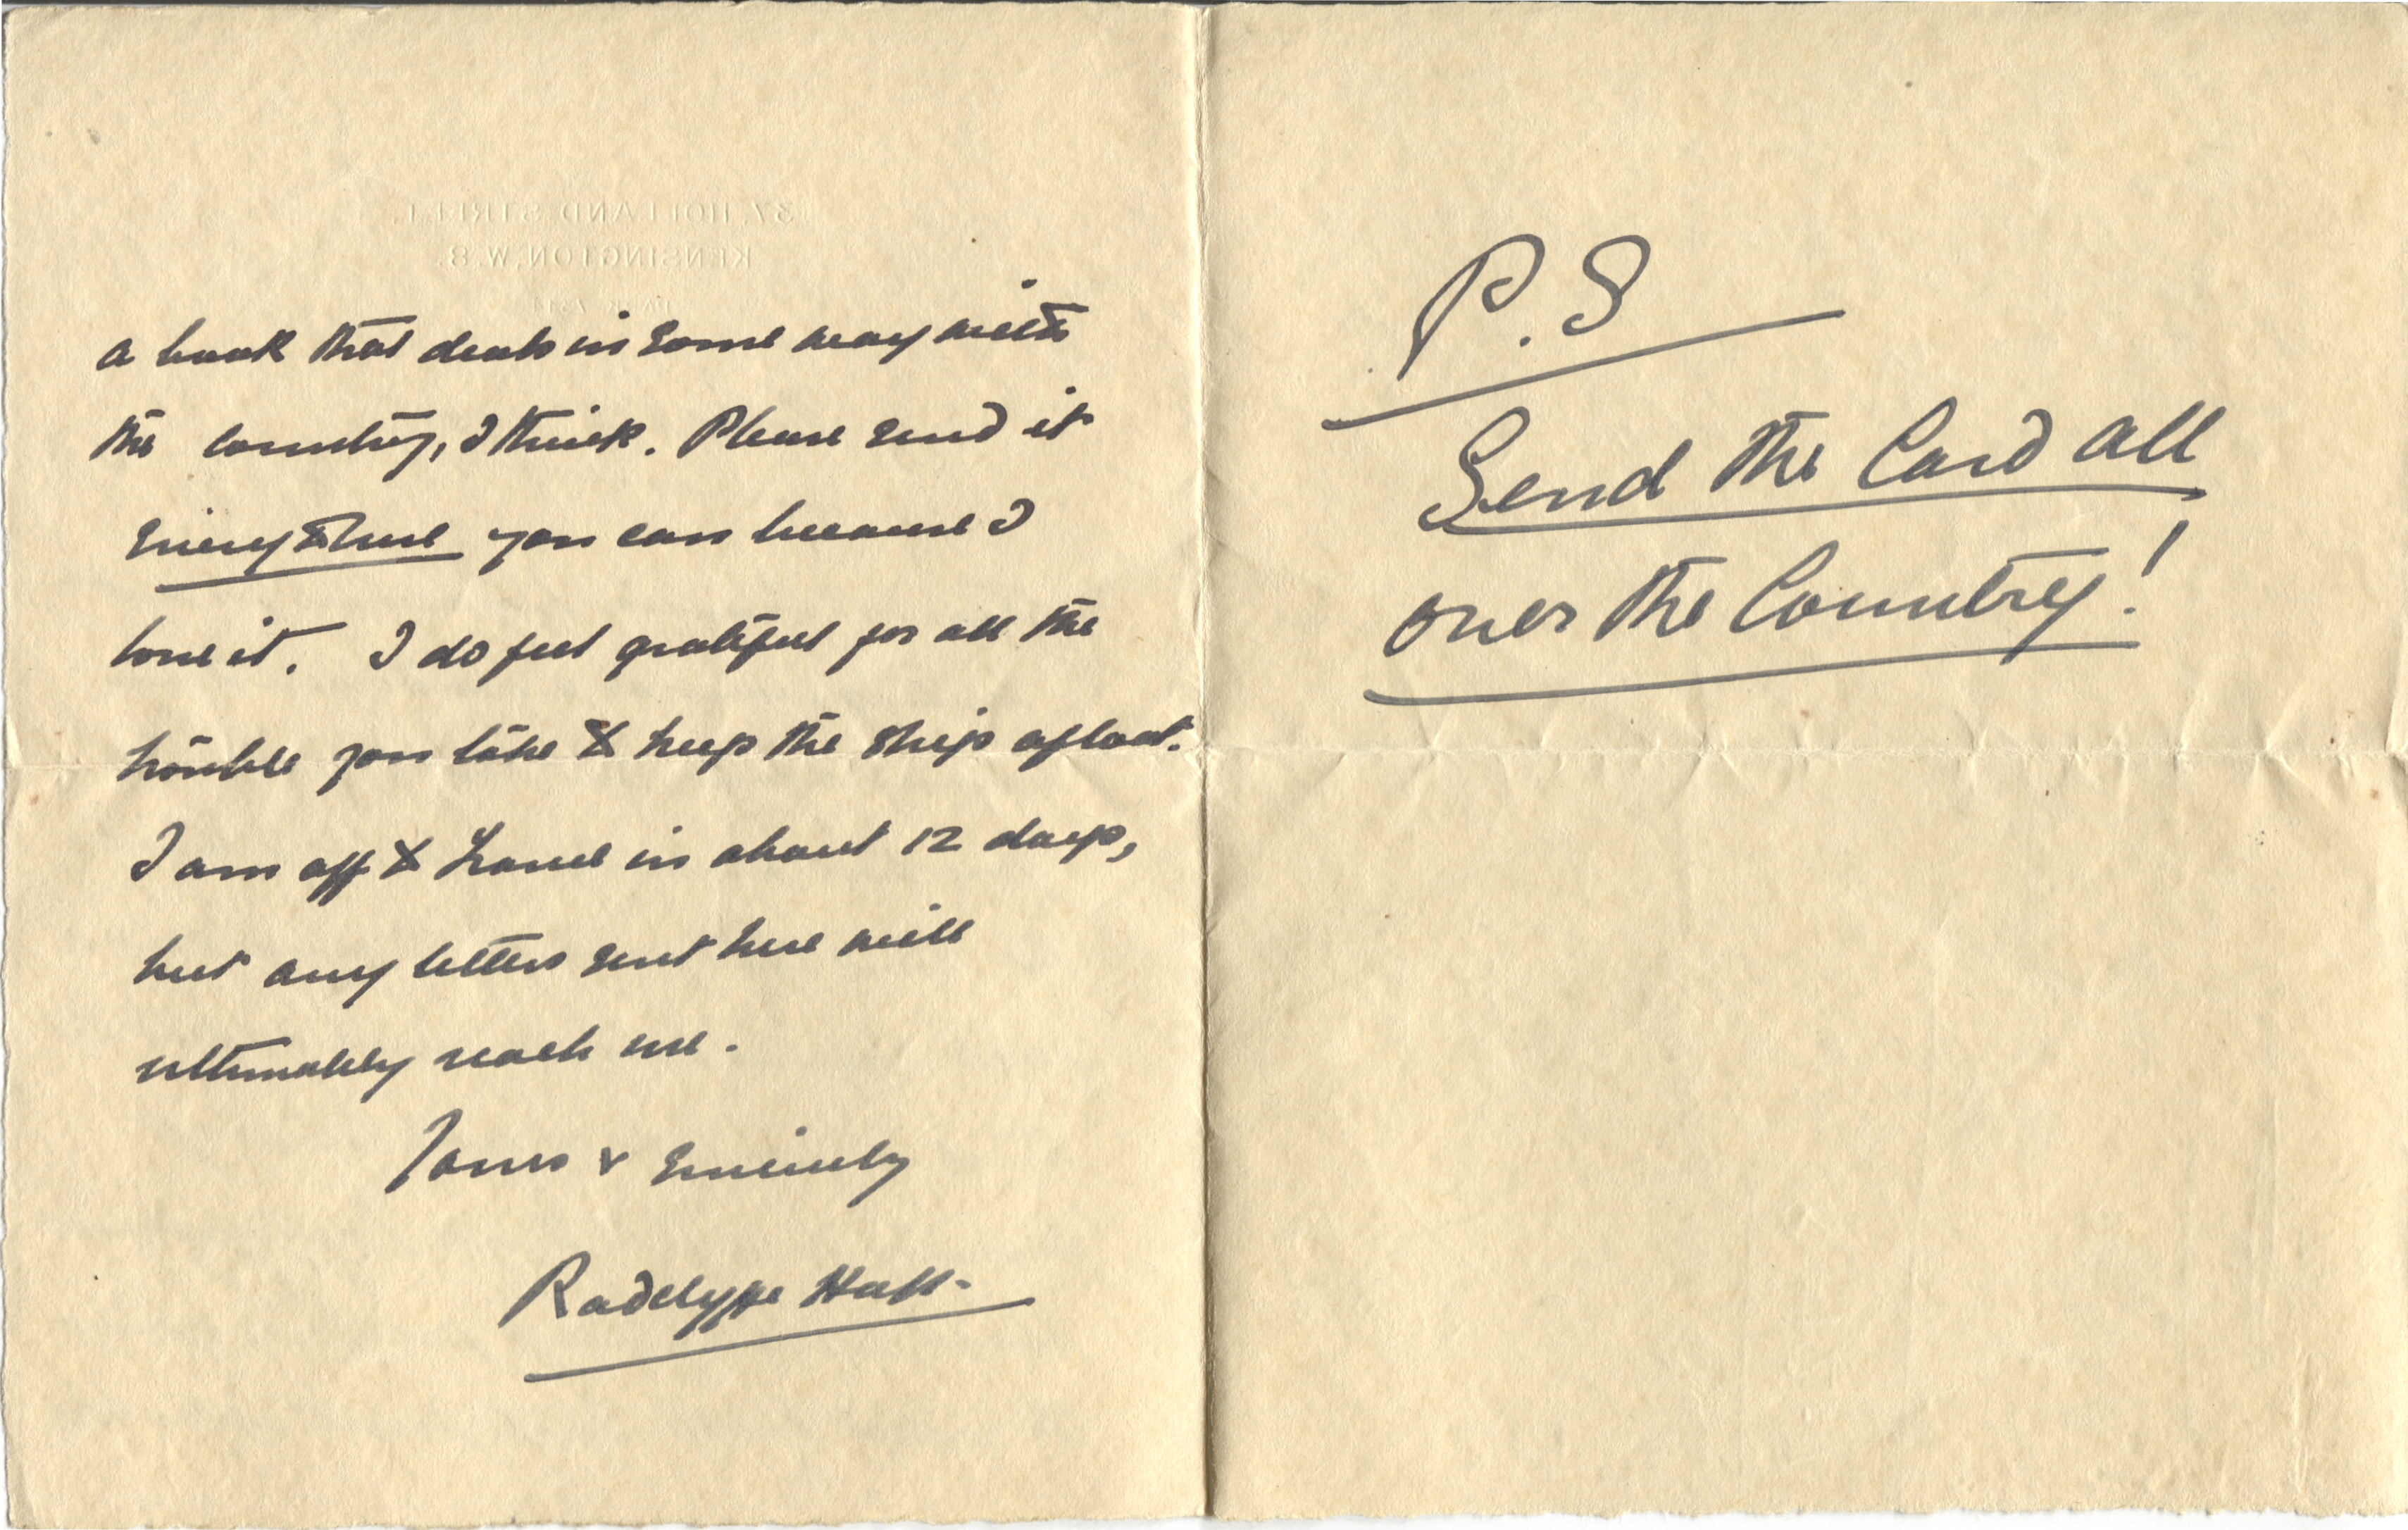 37, HOLLAND STREET,
KENSINGTON, W.8.
a book that deals in some way with
the country, I think. Please send it
every where you can because I
love it. I do feel grateful for all the
trouble you take to keep the ship afloat.
I am off to France in about 12 days,
but any letters sent here will
ultimately reach me.
Yours v sincerely
Radclyffe Hall-
P.S
Send the Card all
over the Country!